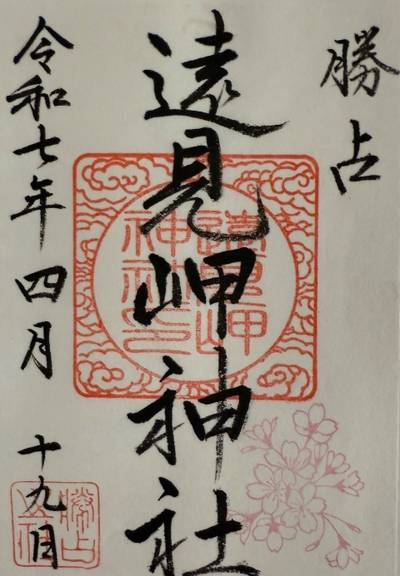 勝占
遠見岬神社
令和七年四月十九日
遠見岬
神社之印